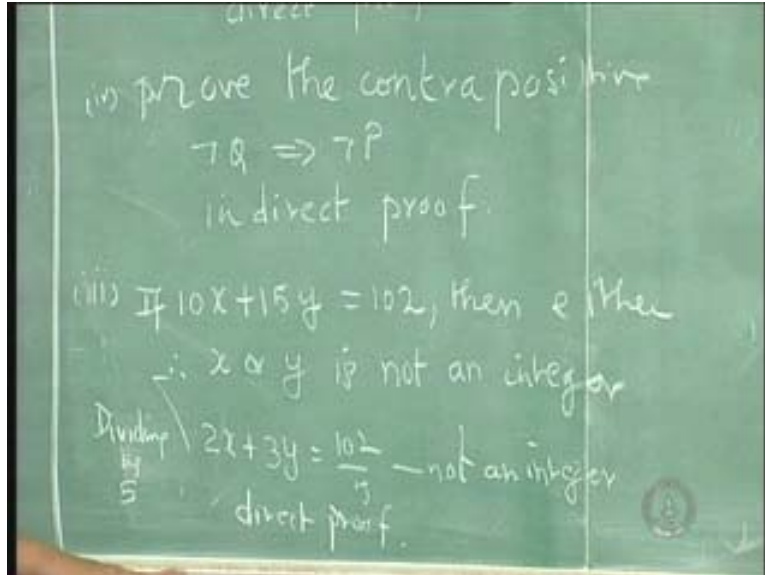 direct
(ii) prove the contrapositive
¬Q ⇒ ¬P
indirect proof.
(iii) If 10x+15y = 102, then either
∴ x or y is not an integer
Dividing by 5 2x+3y = 102/5 — not an integer
direct proof.